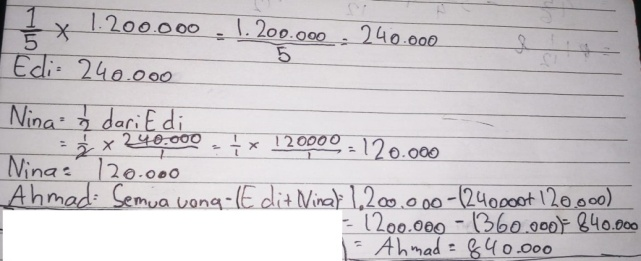 1/5 × 1.200.000 = 1.200.000/5 = 240.000
Edi = 240.000
Nina = 1/2 dari Edi
= 1/2 × 240.000/1 = 1/1 × 120000/1 = 120.000
Nina = 120.000
Ahmad = Semua uang - (Edi + Nina) = 1.200.000 - (240000 + 120.000)
= 1200.000 - (360.000) = 840.000
) = Ahmad = 840.000